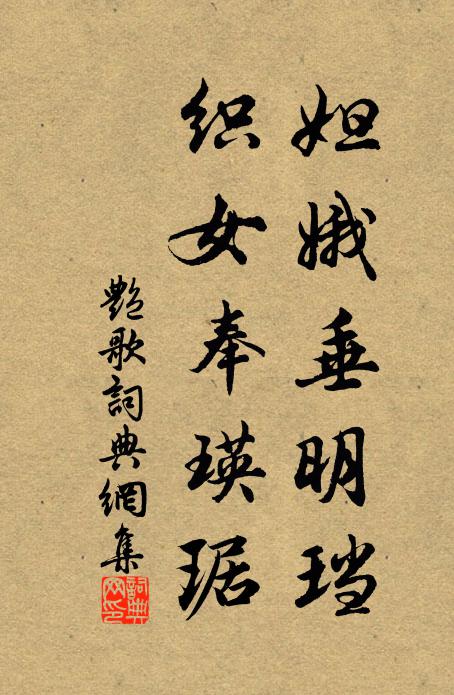 妲娥垂明珰
织女奉瑛琚
艶歌詞典網集
詞典
网印